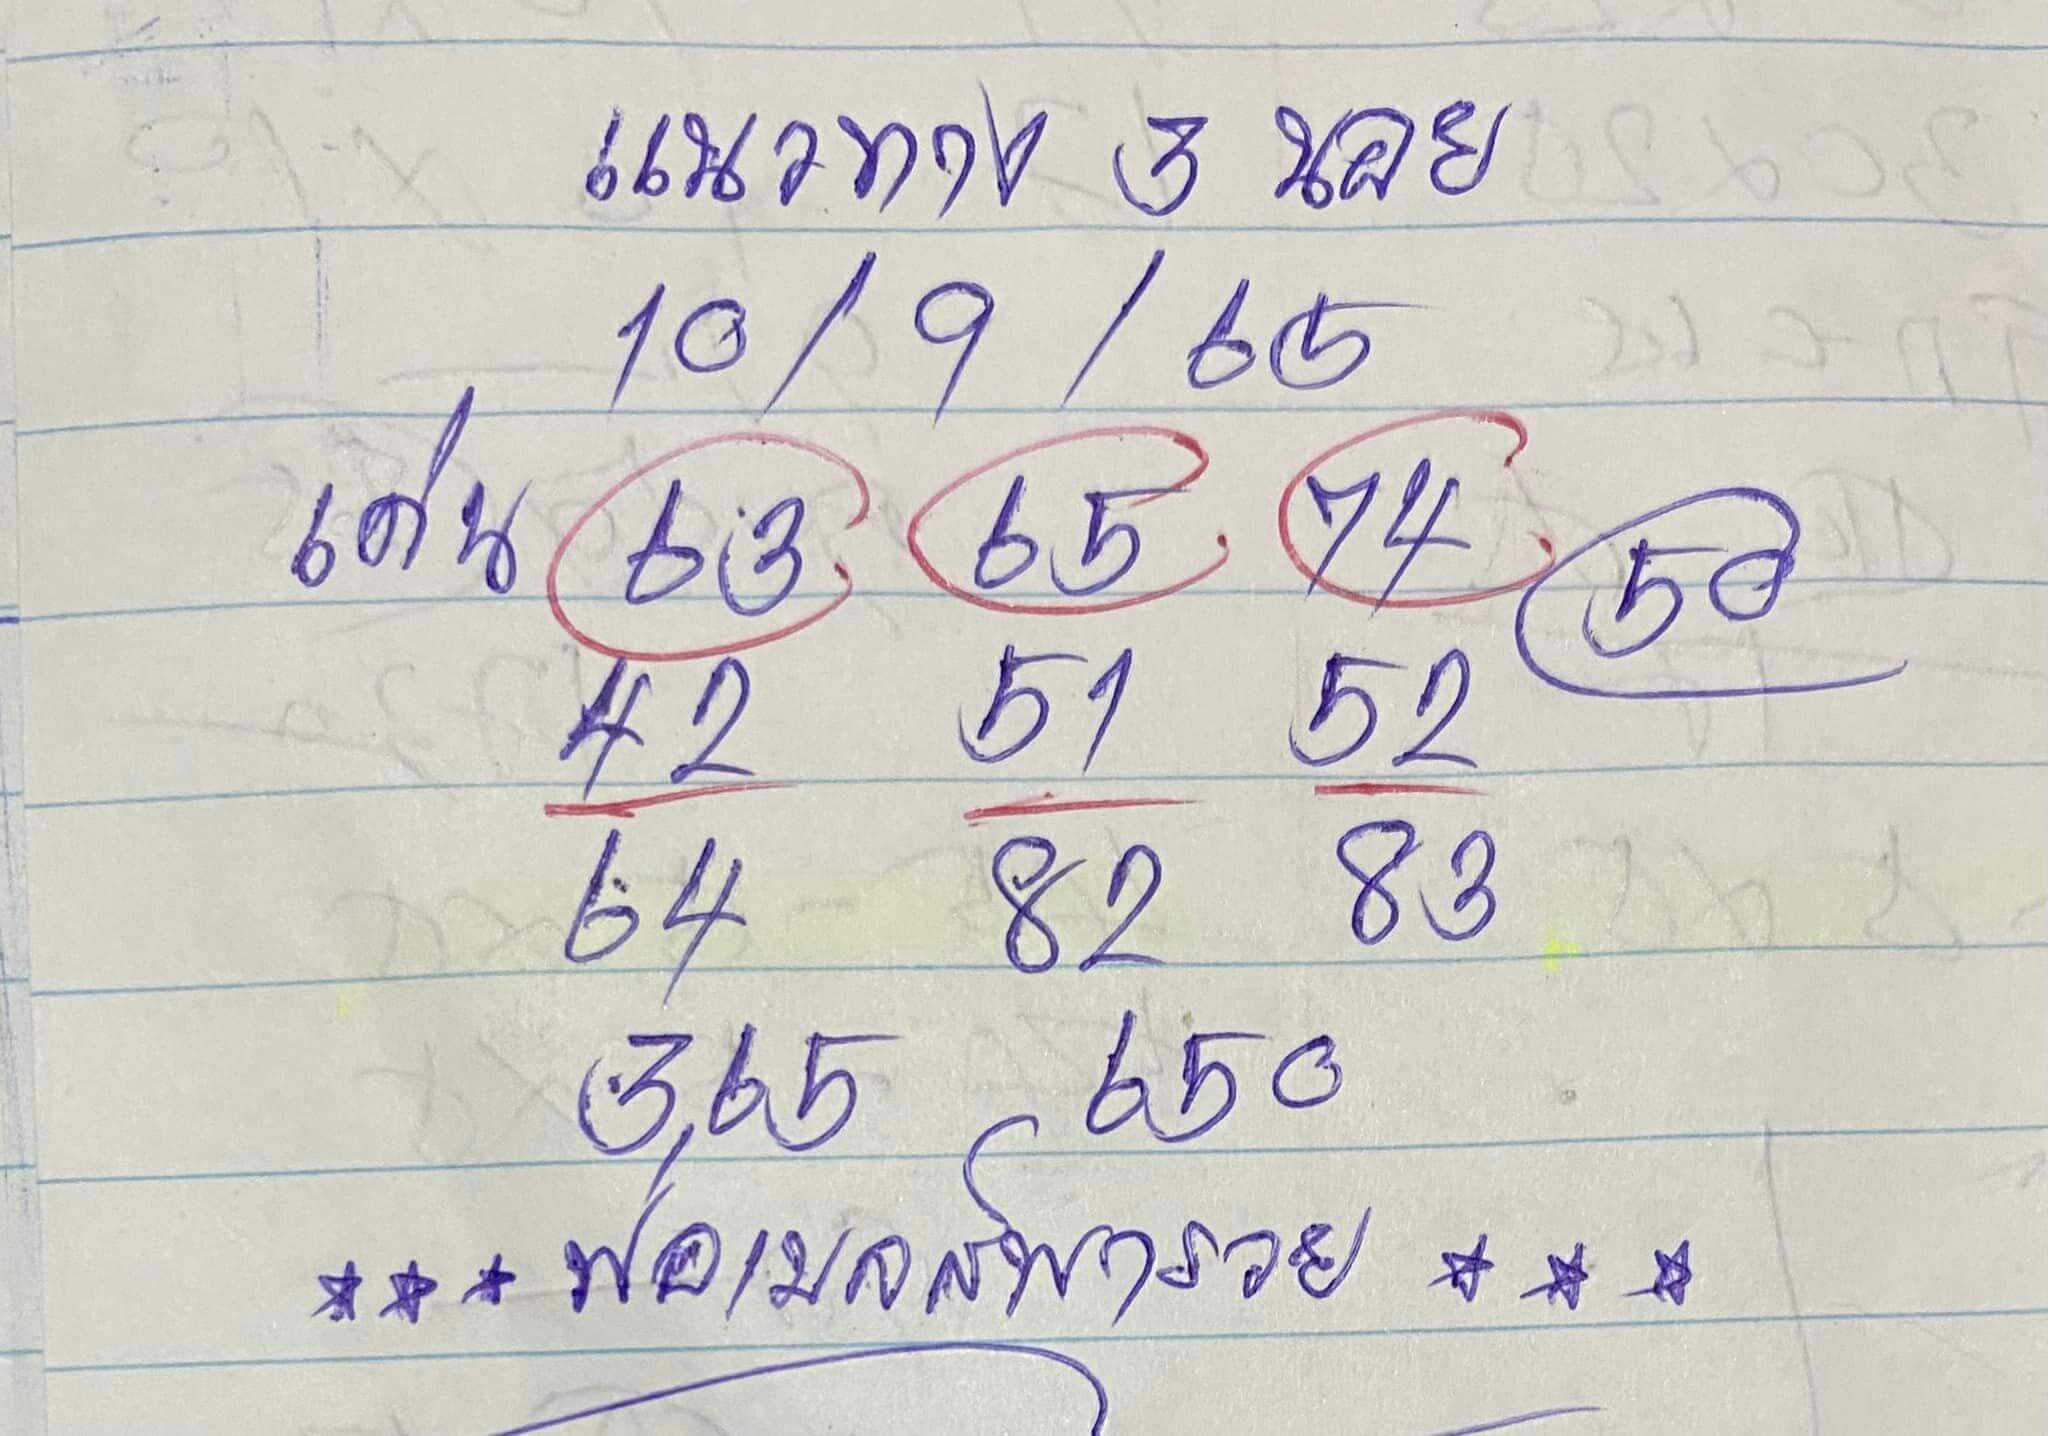 แนวทาง 3 นอย
10 / 9 / 65
เด่น 63 65 74 50
42 51 52
64 82 83
3,65 650
*** พ่อเมจิ พารวย ***